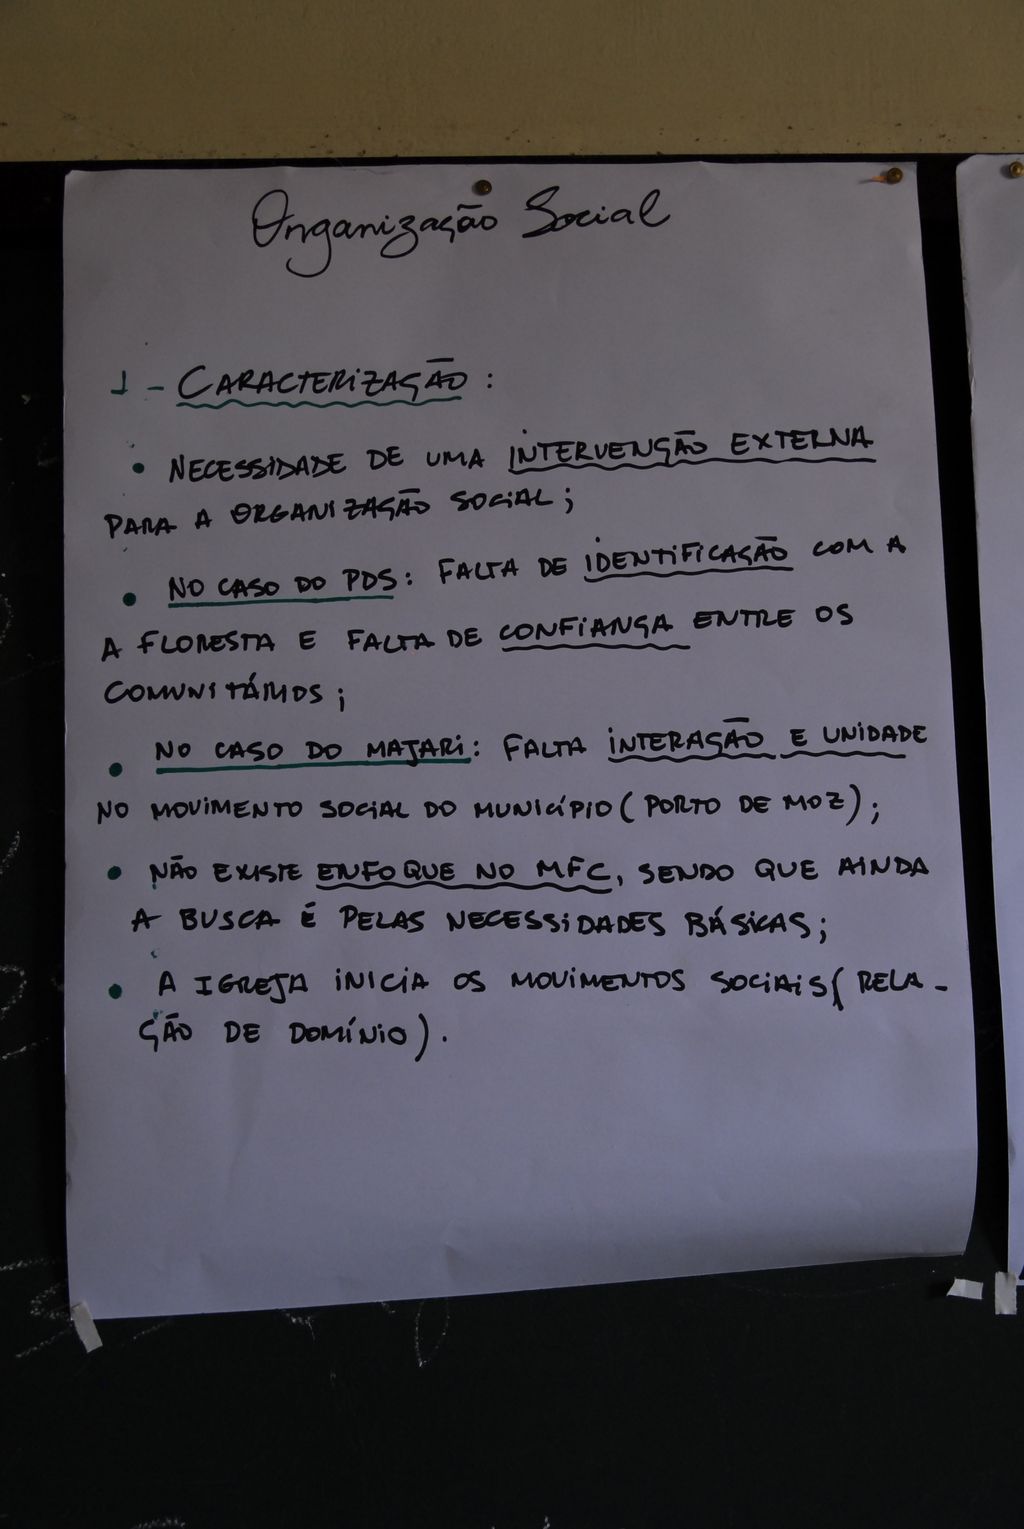 Organização Social
1 - CARACTERIZAÇÃO:
• NECESSIDADE DE UMA INTERVENÇÃO EXTERNA
PARA A ORGANIZAÇÃO SOCIAL;
• NO CASO DO PDS: FALTA DE IDENTIFICAÇÃO COM A
A FLORESTA E FALTA DE CONFIANÇA ENTRE OS
COMUNITÁRIOS;
• NO CASO DO MAJARI: FALTA INTERAÇÃO E UNIDADE
NO MOVIMENTO SOCIAL DO MUNICÍPIO (PORTO DE MOZ);
• NÃO EXISTE ENFOQUE NO MFC, SENDO QUE AINDA
A BUSCA É PELAS NECESSIDADES BÁSICAS;
• A IGREJA INICIA OS MOVIMENTOS SOCIAIS (RELA-
ÇÃO DE DOMÍNIO).